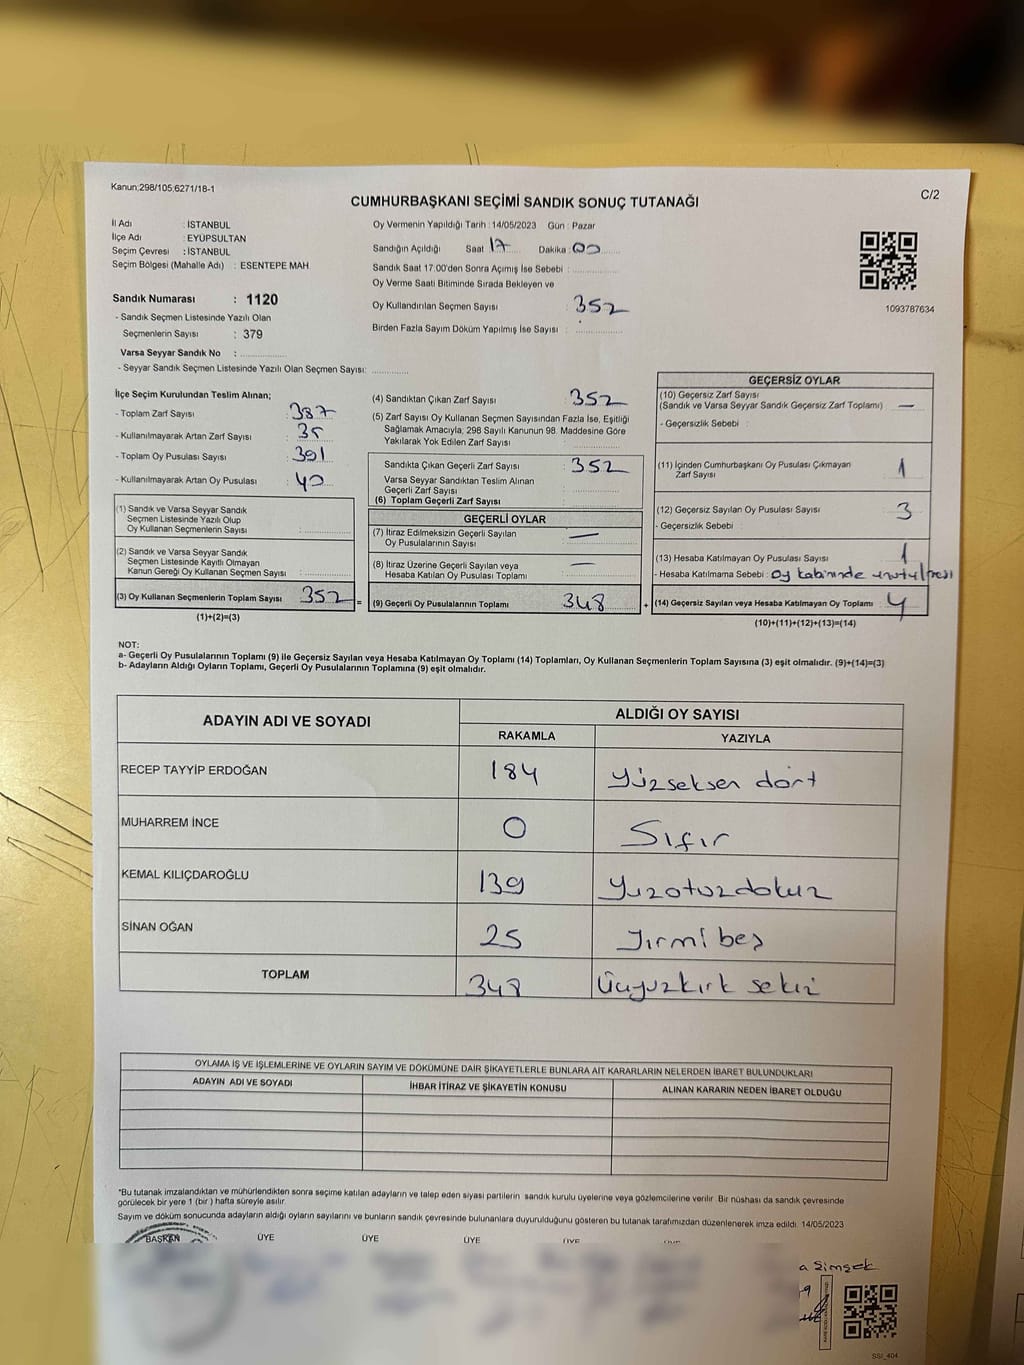 Kanun;298/105;6271/18-1
C/2
CUMHURBAŞKANI SEÇİMİ SANDIK SONUÇ TUTANAĞI
İl Adı : İSTANBUL
İlçe Adı : EYÜPSULTAN
Seçim Çevresi : İSTANBUL
Seçim Bölgesi (Mahalle Adı) : ESENTEPE MAH.
Sandık Numarası : 1120
- Sandık Seçmen Listesinde Yazılı Olan
Seçmenlerin Sayısı : 379
Varsa Seyyar Sandık No :
- Seyyar Sandık Seçmen Listesinde Yazılı Olan Seçmen Sayısı:
Oy Vermenin Yapıldığı Tarih : 14/05/2023 Gün : Pazar
Sandığın Açıldığı Saat 17 Dakika : 00
Sandık Saat 17:00'den Sonra Açımış İse Sebebi :
Oy Verme Saati Bitiminde Sırada Bekleyen ve
Oy Kullandırılan Seçmen Sayısı 352
Birden Fazla Sayım Döküm Yapılmış İse Sayısı :
1093787634
İlçe Seçim Kurulundan Teslim Alınan;
- Toplam Zarf Sayısı : 387
- Kullanılmayarak Artan Zarf Sayısı : 35
- Toplam Oy Pusulası Sayısı : 391
- Kullanılmayarak Artan Oy Pusulası : 40
(1) Sandık ve Varsa Seyyar Sandık
Seçmen Listesinde Yazılı Olup
Oy Kullanan Seçmenlerin Sayısı :
(2) Sandık ve Varsa Seyyar Sandık
Seçmen Listesinde Kayıtlı Olmayan
Kanun Gereği Oy Kullanan Seçmen Sayısı :
(3) Oy Kullanan Seçmenlerin Toplam Sayısı 352 =
(1)+(2)=(3)
(4) Sandıktan Çıkan Zarf Sayısı : 352
(5) Zarf Sayısı Oy Kullanan Seçmen Sayısından Fazla İse, Eşitliği
Sağlamak Amacıyla, 298 Sayılı Kanunun 98. Maddesine Göre
Yakılarak Yok Edilen Zarf Sayısı :
Sandıkta Çıkan Geçerli Zarf Sayısı : 352
Varsa Seyyar Sandıktan Teslim Alınan
Geçerli Zarf Sayısı :
(6) Toplam Geçerli Zarf Sayısı :
GEÇERLİ OYLAR
(7) İtiraz Edilmeksizin Geçerli Sayılan
Oy Pusulalarının Sayısı : —
(8) İtiraz Üzerine Geçerli Sayılan veya
Hesaba Katılan Oy Pusulası Toplamı : —
(9) Geçerli Oy Pusulalarının Toplamı 348 +
GEÇERSİZ OYLAR
(10) Geçersiz Zarf Sayısı
(Sandık ve Varsa Seyyar Sandık Geçersiz Zarf Toplamı) : —
- Geçersizlik Sebebi :
(11) İçinden Cumhurbaşkanı Oy Pusulası Çıkmayan
Zarf Sayısı : 1
(12) Geçersiz Sayılan Oy Pusulası Sayısı : 3
- Geçersizlik Sebebi :
(13) Hesaba Katılmayan Oy Pusulası Sayısı : 1
- Hesaba Katılmama Sebebi : oy kabininde unutulması
(14) Geçersiz Sayılan veya Hesaba Katılmayan Oy Toplamı : 4
(10)+(11)+(12)+(13)=(14)
NOT:
a- Geçerli Oy Pusulalarının Toplamı (9) ile Geçersiz Sayılan veya Hesaba Katılmayan Oy Toplamı (14) Toplamları, Oy Kullanan Seçmenlerin Toplam Sayısına (3) eşit olmalıdır. (9)+(14)=(3)
b- Adayların Aldığı Oyların Toplamı, Geçerli Oy Pusulalarının Toplamına (9) eşit olmalıdır.
ADAYIN ADI VE SOYADI
ALDIĞI OY SAYISI
RAKAMLA YAZIYLA
RECEP TAYYİP ERDOĞAN 184 Yüzseksen dört
MUHARREM İNCE 0 Sıfır
KEMAL KILIÇDAROĞLU 139 Yuzotuzdokuz
SİNAN OĞAN 25 Yirmi beş
TOPLAM 348 Üçyuzkırk sekiz
OYLAMA İŞ VE İŞLEMLERİNE VE OYLARIN SAYIM VE DÖKÜMÜNE DAİR ŞİKAYETLERLE BUNLARA AİT KARARLARIN NELERDEN İBARET BULUNDUKLARI
ADAYIN ADI VE SOYADI İHBAR İTİRAZ VE ŞİKAYETİN KONUSU ALINAN KARARIN NEDEN İBARET OLDUĞU
*Bu tutanak imzalandıktan ve mühürlendikten sonra seçime katılan adayların ve talep eden siyasi partilerin sandık kurulu üyelerine veya gözlemcilerine verilir. Bir nüshası da sandık çevresinde
görülecek bir yere 1 (bir) hafta süreyle asılır.
Sayım ve döküm sonucunda adayların aldığı oyların sayılarını ve bunların sandık çevresinde bulunanlara duyurulduğunu gösteren bu tutanak tarafımızdan düzenlenerek imza edildi. 14/05/2023
BAŞKAN ÜYE ÜYE ÜYE ÜYE
a Şimşek
SSI_404